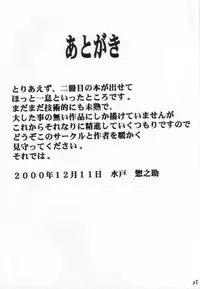 あとがき
とりあえず、二冊目の本が出せて
ほっと一息といったところです。
まだまだ技術的にも未熟で、
大した事の無い作品にしか描けていませんが
これからそれなりに精進していくつもりですので
どうぞこのサークルと作者を暖かく
見守ってください。
それでは。
2000年12月11日 水戸 惣之助
25